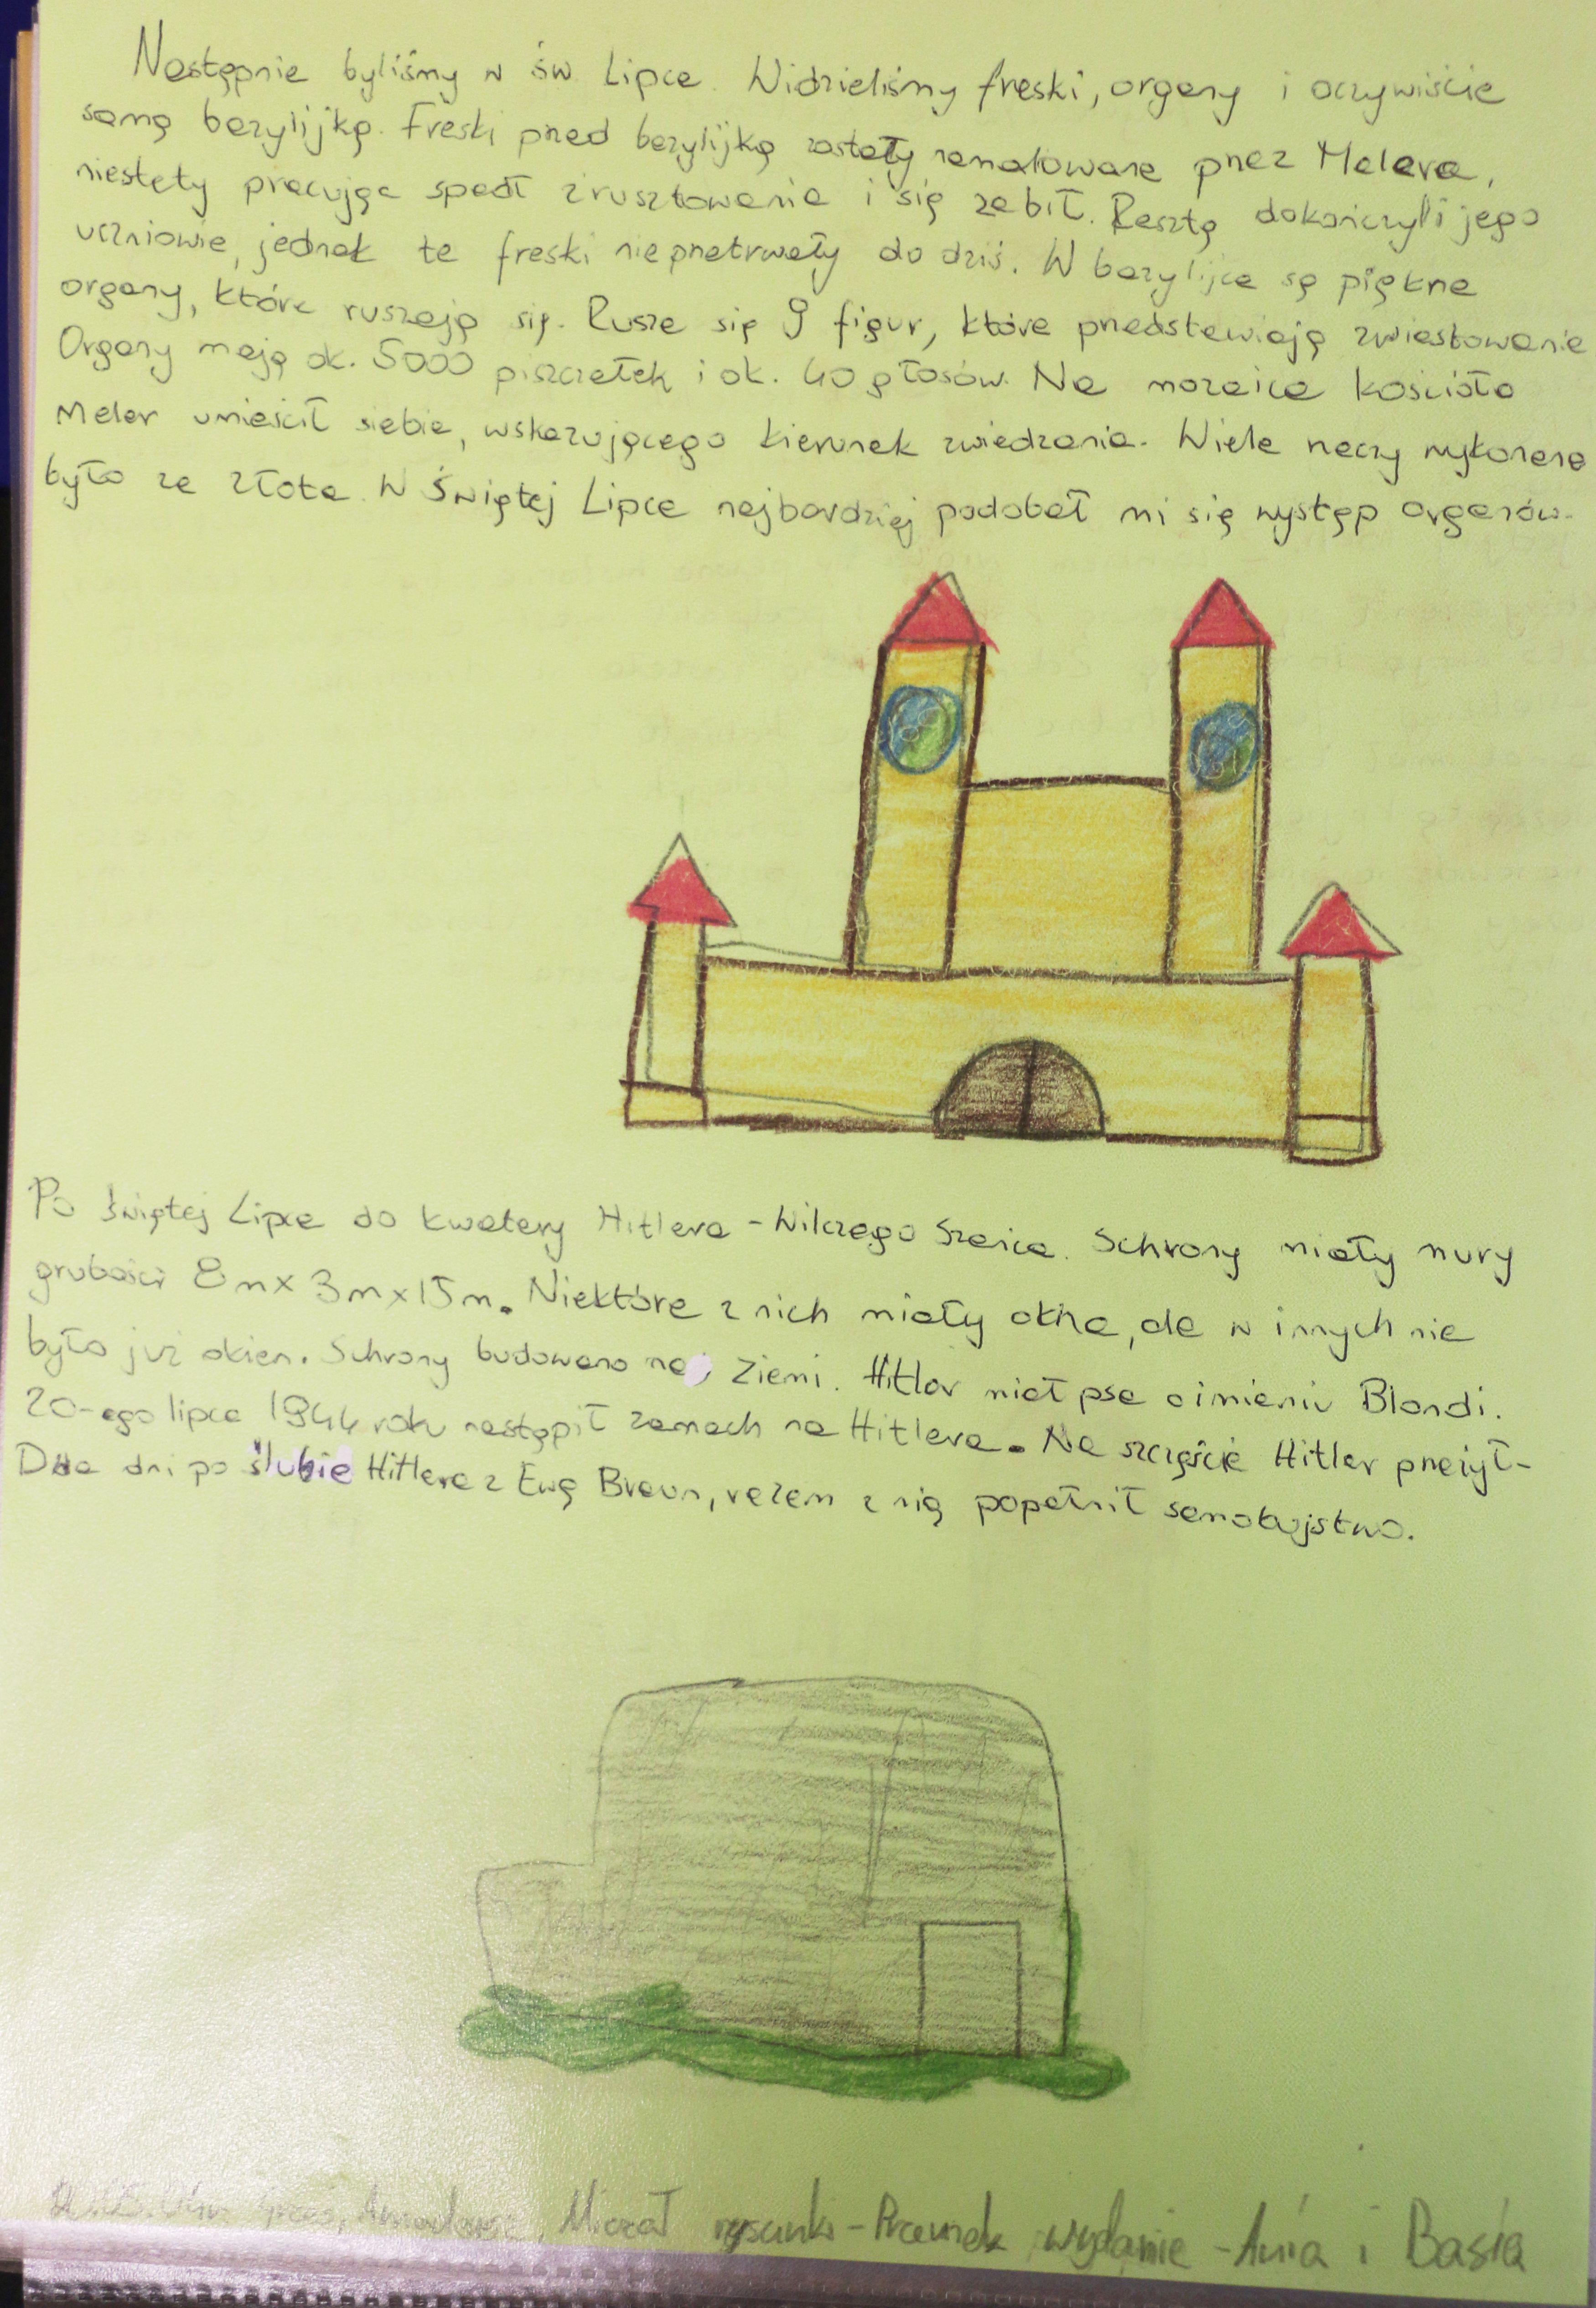 Następnie byliśmy w św Lipce. Widzieliśmy freski, organy i oczywiście
samą bazylijkę. Freski przed bazylijką zostały namalowane przez Melera,
niestety pracując spadł z rusztowania i się zabił. Resztę dokończyli jego
uczniowie, jednak te freski nie przetrwały do dziś. W bazylijce są piękne
organy, które ruszają się. Rusza się 9 figur, które przedstawiają zwiastowanie
Organy mają ok. 5000 piszczałek i ok. 40 głosów. Na mozaice kościoła
Meler umieścił siebie, wskazującego kierunek zwiedzania. Wiele rzeczy wykonane
było ze złota. W Świętej Lipce najbardziej podobał mi się występ organów.
Po Świętej Lipce do kwatery Hitlera - Wilczego Szańca. Schrony miały mury
grubości 8m x 3m x 15m. Niektóre z nich miały okna, ale w innych nie
było już okien. Schrony budowano na ziemi. Hitler miał psa o imieniu Blondi.
20-ego lipca 1944 roku nastąpił zamach na Hitlera. Na szczęście Hitler przeżył-
Dwa dni po ślubie Hitlera z Ewą Braun, razem z nią popełnił samobójstwo.
Michał rysunki - wydanie - Ania i Basia